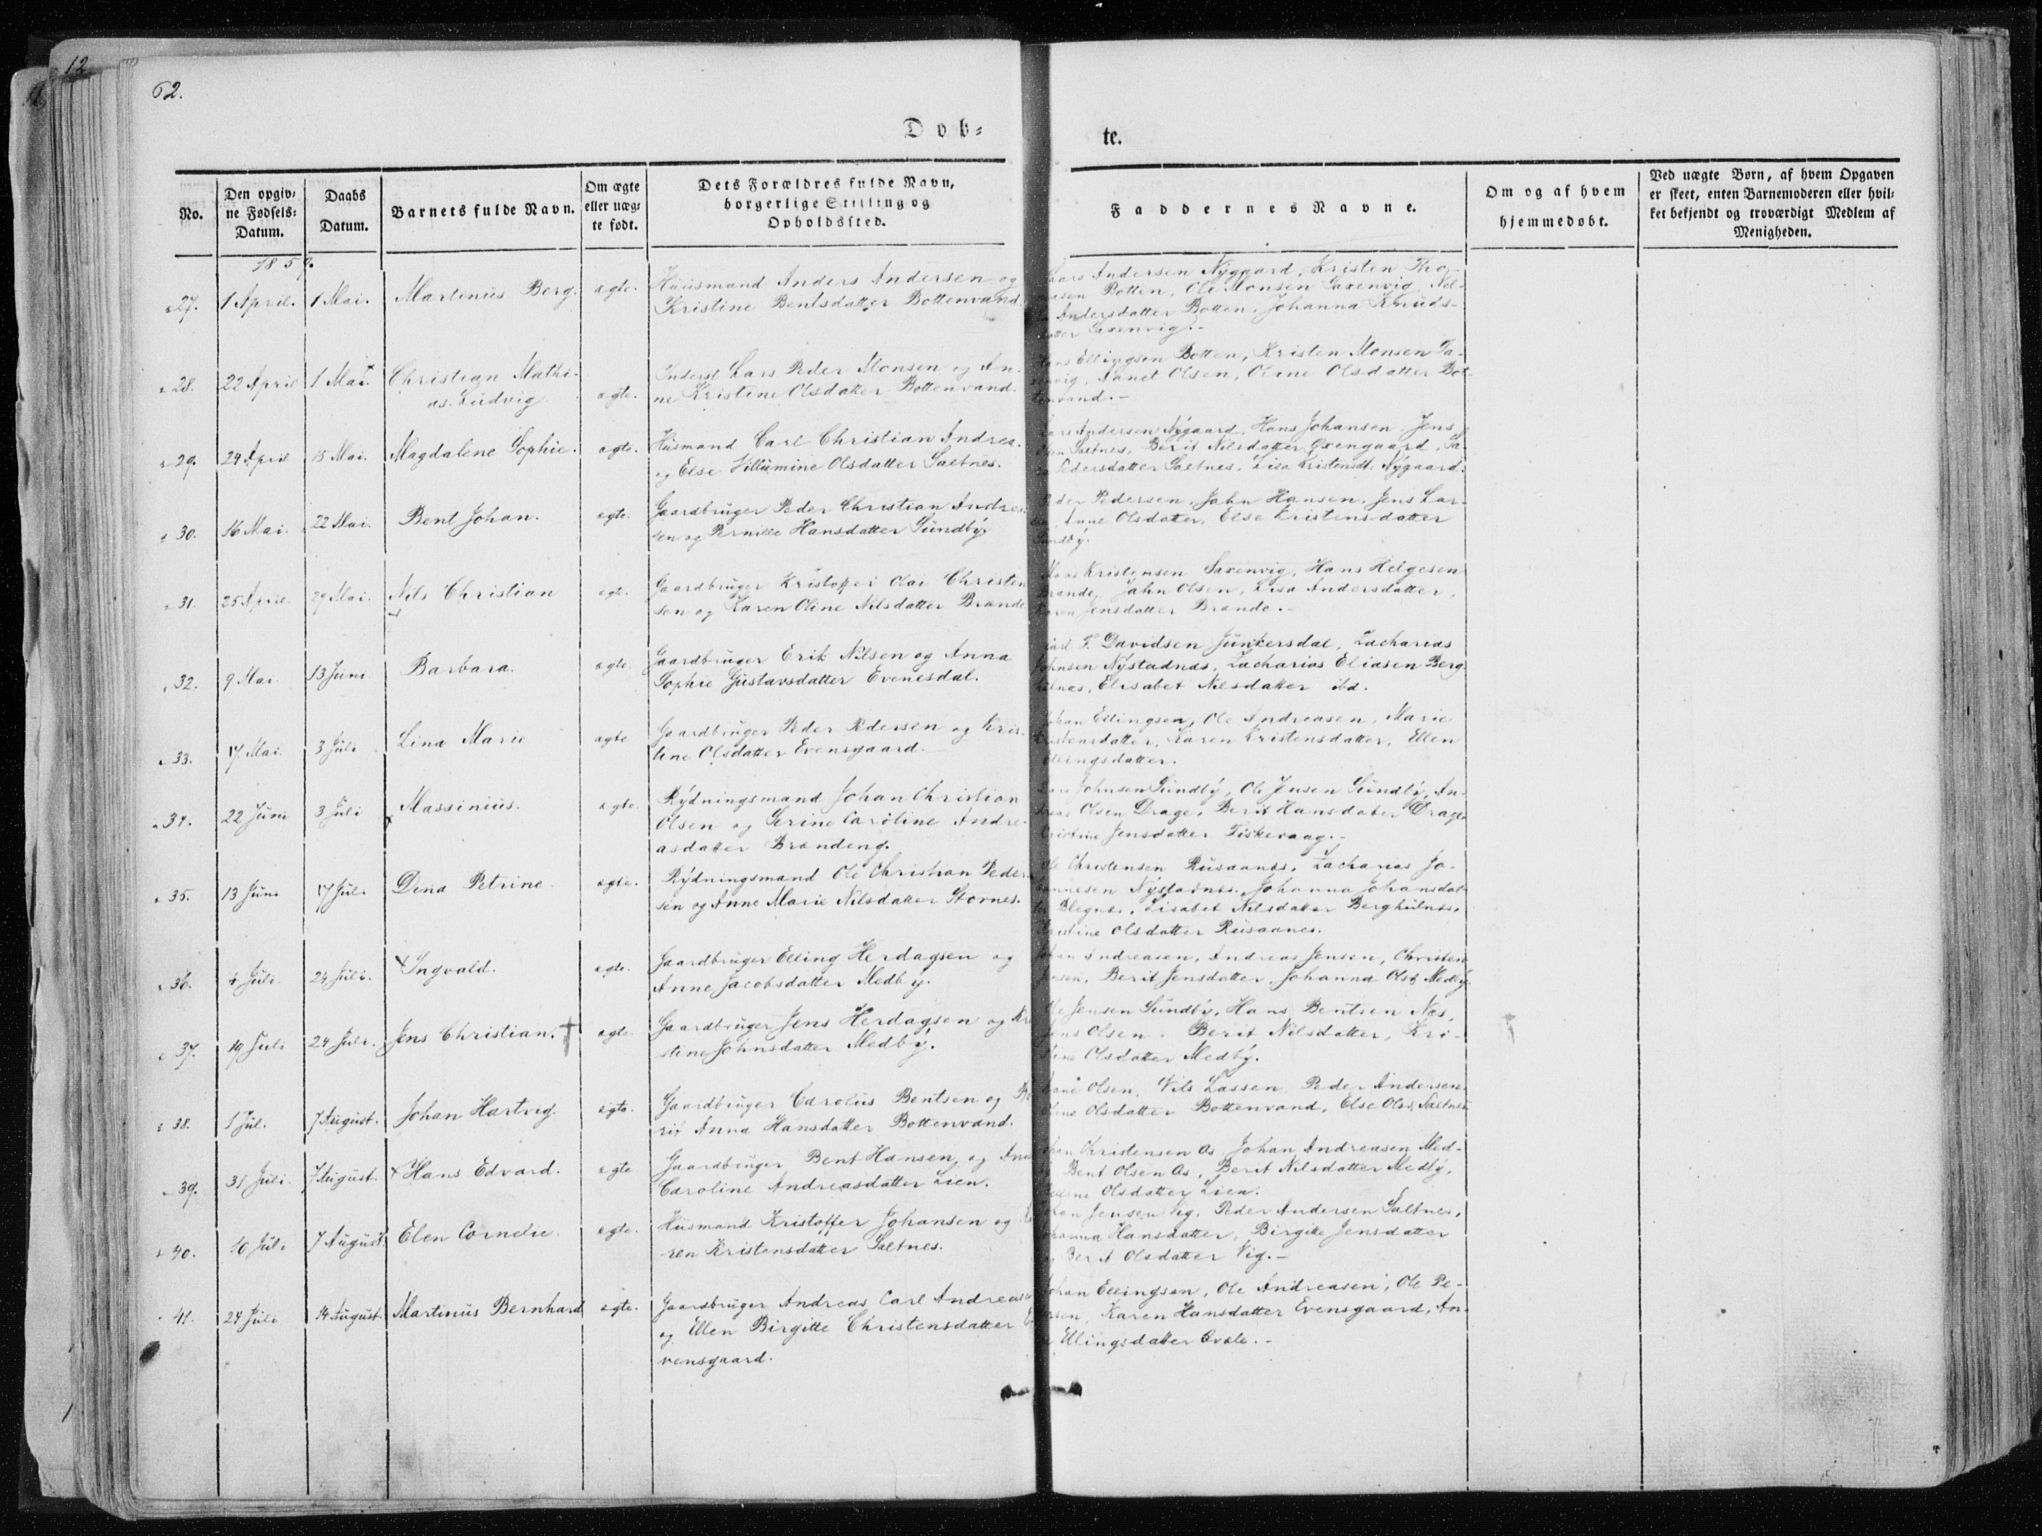 12
62.
Døb-
te.
No.
Den opgiv-
ne Fødsels-
Datum.
Daabs
Datum.
Barnets fulde Navn.
Om ægte
eller uæg-
te født.
Dets Forældres fulde Navn,
borgerlige Stilling og
Opholdssted.
Faddernes Navne.
Om og af hvem
hjemmedøbt.
Ved uægte Børn, af hvem Opgaven
er skeet, enten Barnemoderen eller hvil-
ket bekjendt og troværdigt Medlem af
Menigheden.
1859.
27. 1 April. 1 Mai. Martinus Berg. ægte. Huusmand Anders Andersen og
Kristine Bentsdatter Bottenvand
Lars Andersen Nygaard, Kristen Tho-
masen Botten, Ole Monsen Saxenvig, Nil-
Andersdatter Botten, Johanna Knuds-
datter Saxenvig.-
28. 22 April 1 Mai. Christian Mathi-
as Ludvig. ægte.
Inderst Lars Peder Monsen og An-
ne Kristine Olsdatter Bottenvand.
Hans Ellingsen Botten, Kristen Monsen Sa-
xenvig, Olsen, Oline Olsdatter Bot-
tenvand.-
29. 24 April 15 Mai. Magdalene Sophie. ægte. Husmand Carl Christian Andrea.
og Else Villumine Olsdatter Saltnes.
Lars Andersen Nygaard, Hans Johansen, Jens
Olsen Saltnes, Berit Nilsdatter Øxengaard,
Pedersdatter Saltnes, Lisa Kristensdt. Nygaard.
30. 16 Mai. 22 Mai. Bent Johan. ægte. Gaardbruger Peder Christian Andrea
sen og Pernille Hansdatter Sundby
Peder Pedersen, Jahn Hansen, Jens Lar-
sen, Anne Olsdatter, Else Kristensdatter
Sundby.
31. 25 April. 29 Mai. Nils Christian ægte. Gaardbruger Kristoffer Olai Christen
sen og Karen Oline Nilsdatter Brande
Hans Kristensen Saxenvig, Hans Helgesen
Brande, Jahn Olsen, Lisa Andersdatter,
Karen Jensdatter Brande.-
32. 9 Mai 13 Juni Barbara. ægte. Gaardbruger Erik Nilsen og Anna
Sophie Gustavsdatter Evenesdal.
Carl F. Davidsen Junkersdal, Zacharias
Johnsen Nystadnæs, Zacharias Eliasen Berg
hulnæs, Elisabet Nilsdatter ibd.
33. 17 Mai. 3 Juli Lina Marie ægte Gaardbruger Peder Pedersen og Kris-
tine Olsdatter Evensgaard.
Johan Ellingsen, Ole Andreasen, Marie
Kristensdatter, Karen Kristensdatter, Ellen
Ellingsdatter.
34. 22 Juni 3 Juli Massinius. ægte. Rydningsmand Johan Christian
Olsen og Serine Caroline Andre-
asdatter Brændeng.
Johnsen Sundby, Ole Jensen Sundby, An-
dreas Olsen Drage, Berit Hansdatter Drage
Kristine Jensdatter Fiskevaag.-
35. 13 Juni 17 Juli Dina Petrine. ægte. Rydningsmand Ole Christian Peder
sen og Anne Marie Nilsdatter Stornes.
Ole Christensen Rusaanes, Zacharias Jo-
hannesen Nystadnes, Johanna Johansdat-
ter, Lisabet Nilsdatter Berghulnes,
Kristine Olsdatter Rusaanes.
36. 4 Juli. 24 Juli. Ingvald. ægte. Gaardbruger Elling Herdagsen og
Anne Jacobsdatter Medby.
Johan Andreasen, Andreas Jensen, Christen
Jensen, Berit Jensdatter, Johanna Olsd Medby
37. 19 Juli 24 Juli. Jens Christian. † ægte. Gaardbruger Jens Herdagsen og Kri
stine Johnsdatter Medby.
Ole Jensen Sundby, Hans Bentsen Næs,
Jens Olsen. Berit Nilsdatter, Kri-
stine Olsdatter Medby.
38. 1 Juli. 7 August. Johan Hartvig. ægte. Gaardbruger Carolus Bentsen og Be
rit Anna Hansdatter Bottenvand.
Olsen, Nils Lassen, Peder Andersen,
Oline Olsdatter Bottenvand, Else Olsd Saltnes
39. 31 Juli. 7 August. Hans Edvard. ægte Gaardbruger Bent Hansen og Ane
Caroline Andreasdatter Lien.
Johan Kristensen As, Johan Andreasen Med-
by, Bent Olsen As, Berit Nilsdatter Medby,
Olsdatter Lien.
40. 10 Juli 7 August. Elen Cornelie. ægte. Husmand Kristoffer Johansen og Ka
ren Kristensdatter Saltnes.
Johan Jensen Vig, Peder Andersen Saltnes,
Johanna Hansdatter, Birgitte Jensdatter
og Berit Olsdatter Vig.-
41. 24 Juli 14 August. Martinus Bernhard ægte. Gaardbruger Andreas Carl Andrease
og Ellen Birgitte Christensdatter E
vensgaard.
Johan Ellingsen, Ole Andreasen, Ole Pe-
dersen, Karen Hansdatter Evensgaard, An-
ne Ellingsdatter Evale.-